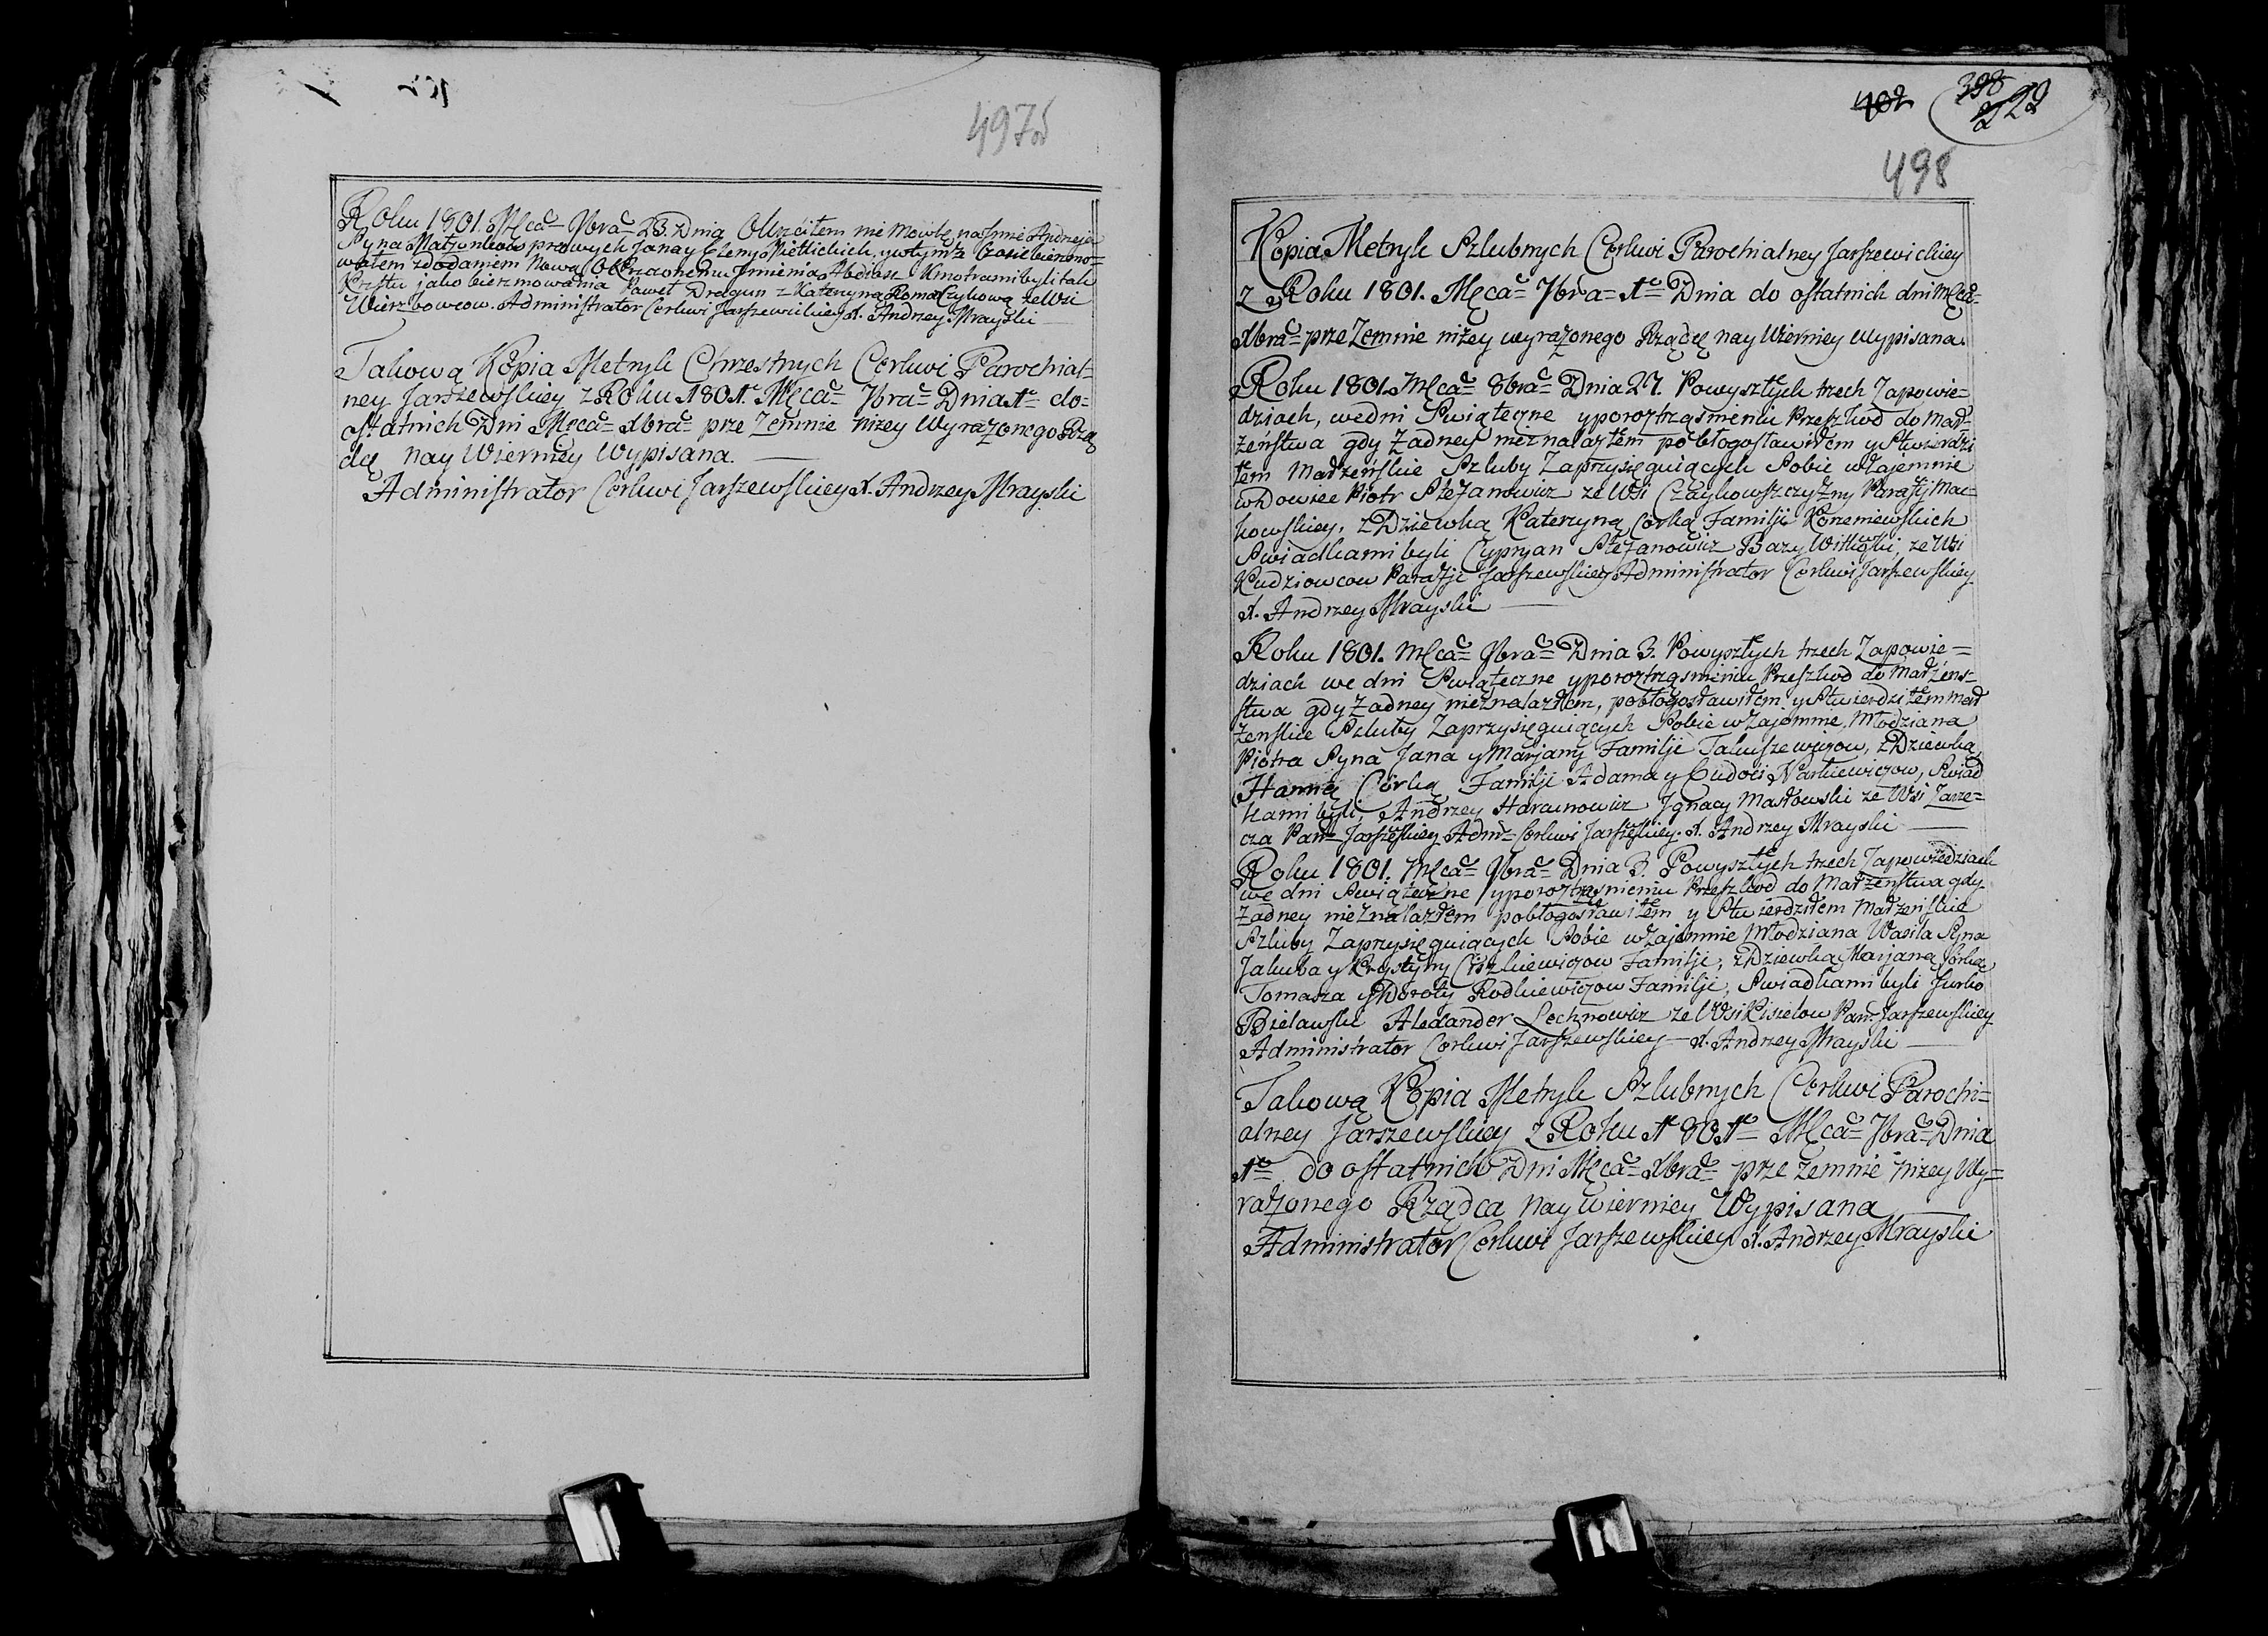 497об
Roku 1801. Męca 9bra 23. Dnia Okrzciłem nie mowlę na Jmie Andrzeja
Syna Małżonkow prawych Jana y Eleny Pietlickich, y w tymże Czasie bierzmo=
wałem z dodaniem Nowo Okrzczonemu Jmienia Abdiasz Kmotrami byli tak
Krztu jako bierzmowania Paweł Dragun z Kateryną Romaczykową ze Wsi
Wierzbowcow. Administrator Cerkwi Jarszewickiey X. Andrzey Mrayski
Takową Kopia Metryk Chrzestnych Cerkwi Parochial=
ney Jarszewskiey z Roku 1801. Męca 7bra Dnia 1 do=
ostatnich Dni Męca Xbra prze Zemnie niżey Wyrażonego Rzą
dcę nay Wierniey Wypisana.
Administrator Cerkwi Jarszewskiey X. Andrzey Mrayski
402 398
229
498
Kopia Metryk Szlubnych Cerkwi Parochialney Jarszewickiey
z Roku 1801. Męca 7bra 1 Dnia do ostatnich dni Męca=
Xbra prze Zemnie niżey wyrażonego Rządcę nay Wierniey Wypisana.
Roku 1801. Męca 8bra Dnia 27. Powyszłych trzech Zapowie=
dziach, we dni Swiąteczne y porortrząsnieniu Przeszkod do Mał=
żenstwa gdy żadney nieznalazłem pobłogosławiłem y Stwierdzi
łem Małżeńskie Szluby Zaprzysięguiących Sobie wzajemnie
wdowiec Piotr Stefanowicz ze Wsi Czaykowszczyzny Parafij Mac=
kowskiey, z Dziewką Kateryną Corką Familji Korzeniewskich
Swiadkami byli Cypryan Stefanowicz Bazy Witkoski, ze Wsi
Kudziowcow Parafji Jarszewskiey Administrator Cerkwi Jarszewskiey
X. Andrzey Mrayski
Roku 1801. Męca 9bra Dnia 3. Powyszłych trzech Zapowie=
dziach we dni Swiąteczne y porortrząsnieniu Przeszkod do Małżens=
stwa gdy żadney nieznalazłem, pobłogosławiłem y Stwierdziłem Mał
żenskie Szluby Zaprzysięguiących Sobie wzajemnie, Młodziana
Piotra Syna Jana y Marjany Familji Jakuszewiczow, z Dziewką
Hanną Corką Familji Adama y Eudoci Narkiewiczow, Swiad
kami byli, Andrzey Haraunowicz Jgnacy Masłowski ze Wsi Zarze=
cza Par. Jarszewskiey Adm= Cerkwi Jarszewskiey. X. Andrzey Mrayski
Roku 1801. Męca 9bra Dnia 3. Powyszłych trzech Zapowiedziach
we dni Swiąteczne y porortrząsnieniu Przeszkod do Małżenstwa gdy
żadney nieznalazłem pobłogosławiłem y Stwierdziłem Małżenskie
Szluby Zaprzysięguiących Sobie wzajemnie Młodziana Wasila Syna
Jakuba y Krystyny Ciszkiewiczow Familji, z Dziewką Marjaną Corką
Tomasza y Doroty Rodkiewiczow Familji, Swiadkami byli Jurko
Bielawski Alexander Lechnowicz ze Wsi Kisielow Par. Jarszewskiey
Administrator Cerkwi Jarszewskiey X. Andrzey Mrayski
Takową Kopia Metryk Szlubnych Cerkwi Parochi=
alney Jarszewskiey z Roku 1801 Męca 7bra Dnia
1 do ostatnich Dni Męca Xbra prze zemnie niżey Wy=
rażonego Rządca nay wierniey Wypisana
Administrator Cerkwi Jarszewskiey X. Andrzey Mrayski